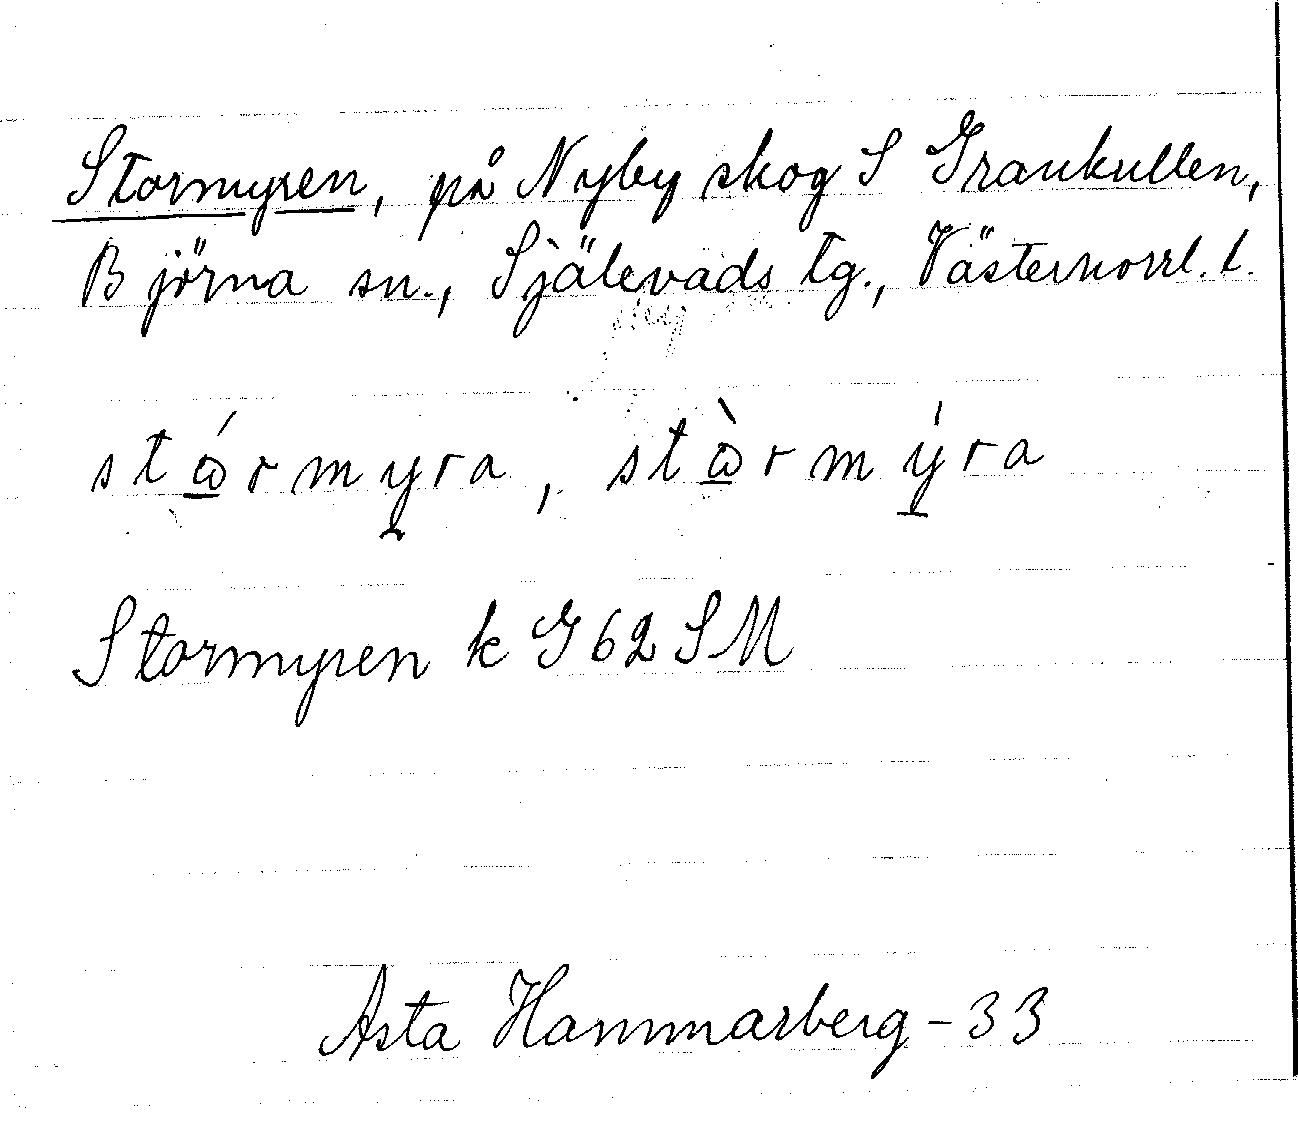 Stormyren, på Nyby skog S Grankullen,
Björna sn., Själevads tg., Västernorrl. l.
stώrmyra, stὼrmýra
Stormyren k G 62 SM
Asta Hammarberg - 33